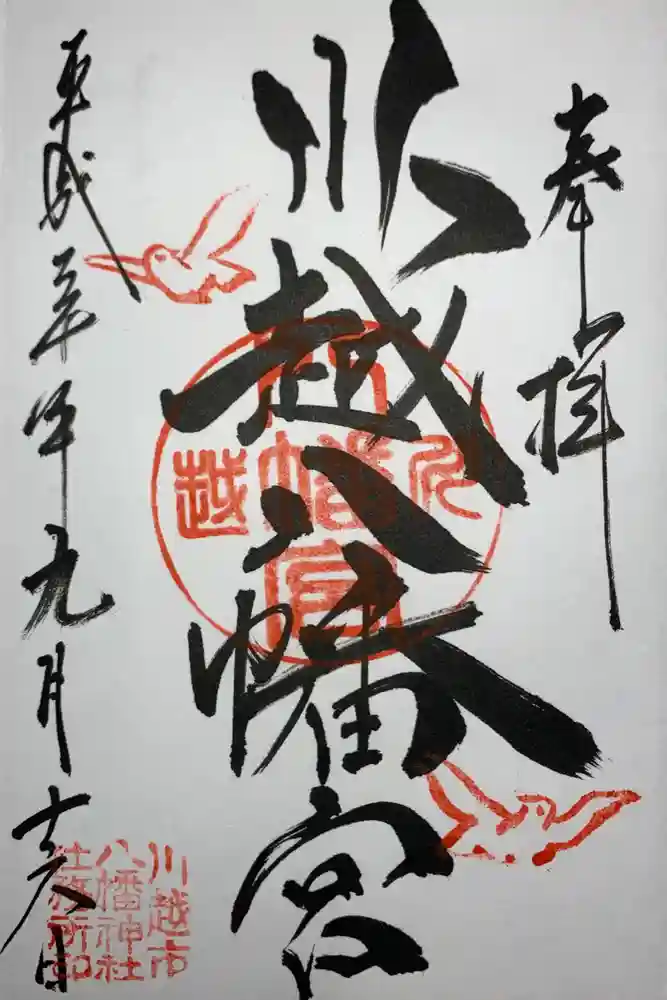 奉拝
川越八幡宮
川越八幡宮
平成三十年九月十六日
川越市
八幡神社
社務所印